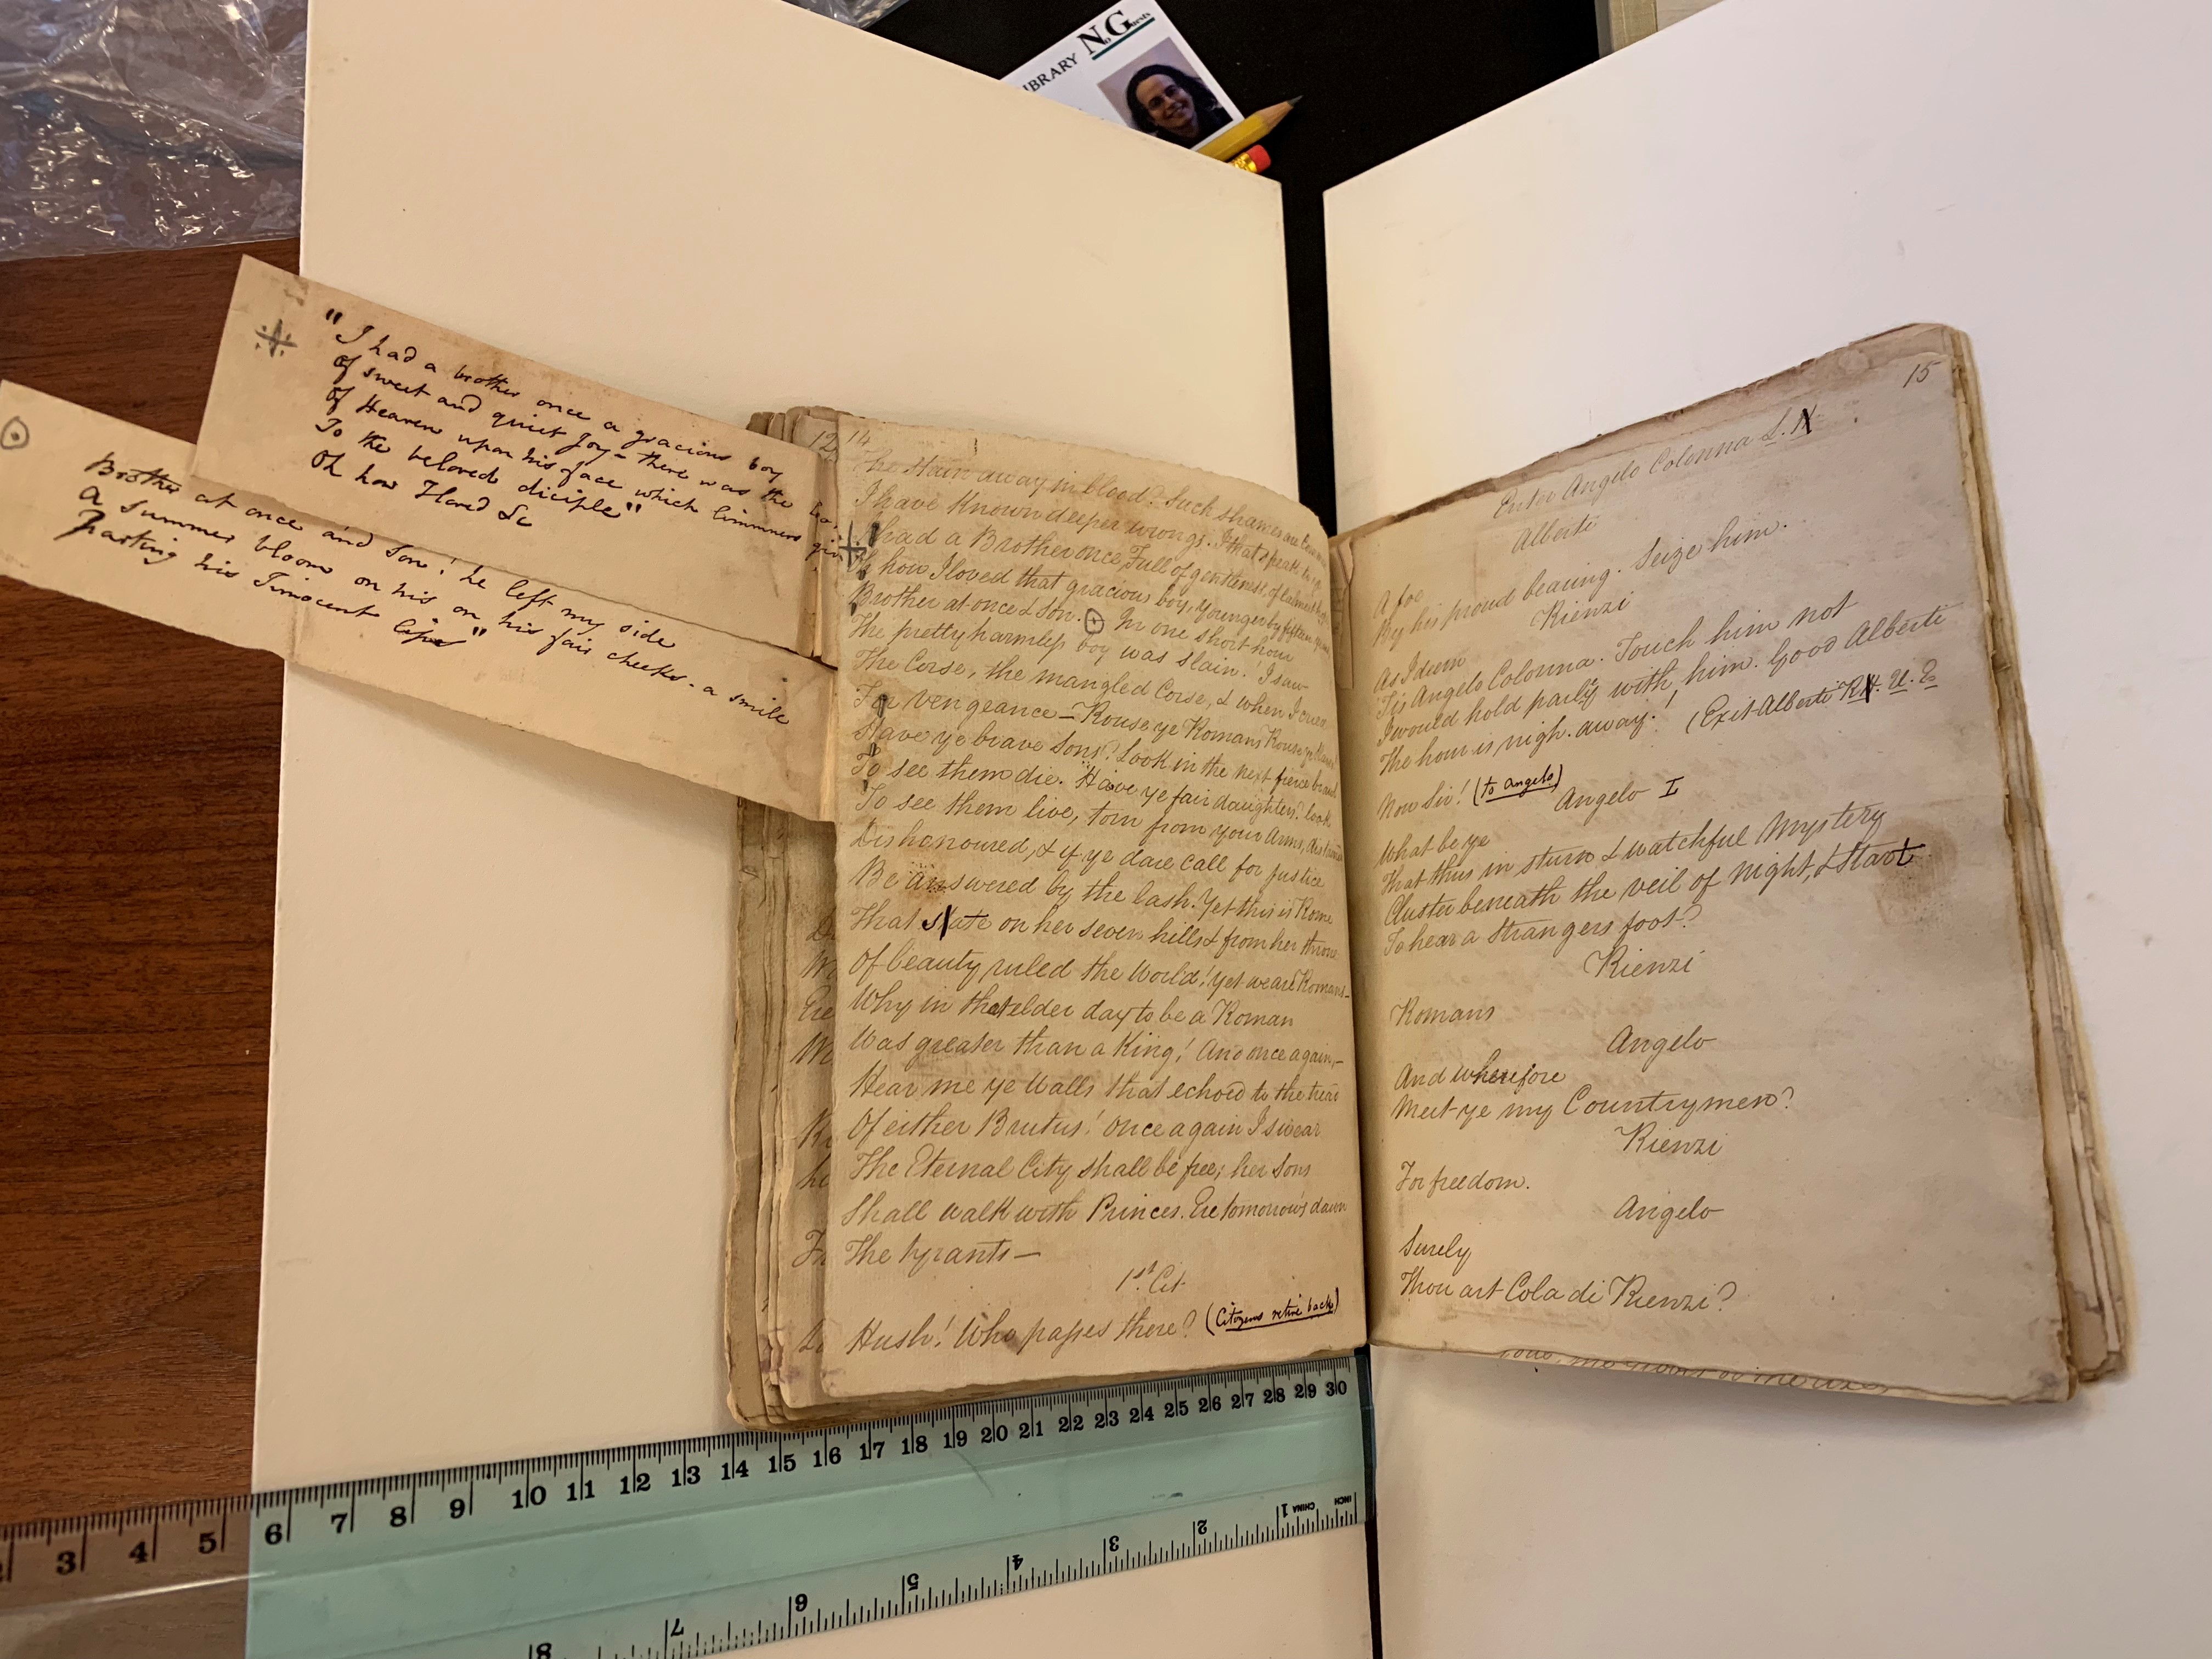 LIBRARY NoGuests
"I had a brother once a gracious boy
Of sweet and quiet Joy - there was the
Of Heaven upon his face which limmners
To the beloved diciple"
Oh how I loved &c
Brother at once and Son! he left my side
A Summer bloom on his on his fair cheeks - a smile
Parting his Innocent lips"
12
14
The stain away in blood? Such shames are
I have Known deeper wrongs. I that speak to ye
I had a Brother once Full of gentleness, of
Oh how I loved that gracious boy, younger by fifteen
Brother at once & Son. In one short hour
The pretty harmless boy was slain! I saw
The Corse, the mangled Corse, & when I cried
For vengeance — Rouse ye Romans Rouse ye
Have ye brave Sons? Look in the next fierce brawl
To see them die. Have ye fair daughters? look
To see them live, torn from your Arms,
Dishonoured, & if ye dare call for Justice
Be answered by the lash. Yet this is Rome
That sate on her seven hills & from her throne
Of beauty ruled the World! Yet we are Romans—
Why in that elder day to be a Roman
Was greater than a King! And once again,—
Hear me ye Walls that echoed to the tread
Of either Brutus! once again I swear
The Eternal City shall be free; her Sons
Shall walk with Princes. Ere tomorrow's dawn
The tyrants —
1st Cit
Hush! Who passes there? (Citizens retire back)
15
Enter Angelo Colonna L.
Alberti
A foe
By his proud bearing. Seize him.
Rienzi
As I deem
Tis Angelo Colonna. Touch him not
I would hold parly with him. Good Alberti
The hour is nigh. away! (Exit Alberti R. U. E
Now Sir! (to Angelo)
Angelo I
What be ye
That thus in stern & watchful Mystery
Cluster beneath the veil of Night, & Start
To hear a Strangers foot?
Rienzi
Romans
Angelo
And wherefore
Meet ye my Countrymen?
Rienzi
For freedom.
Angelo
Surely
Thou art Cola di Rienzi?
3 4 5 6 7 8 9 10 11 12 13 14 15 16 17 18 19 20 21 22 23 24 25 26 27 28 29 30
8 7 6 5 4 3 2 1 CHINA INCH